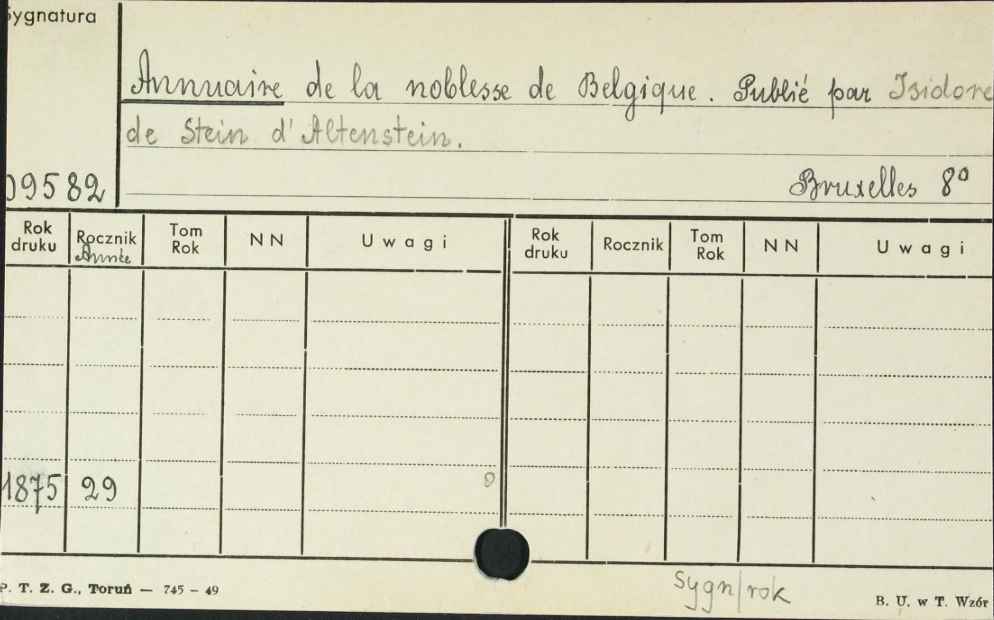 Sygnatura
Annuaire de la noblesse de Belgique. Publié par Isidore
de Stein d'Altenstein.
09582 Bruxelles 8°
Rok druku Rocznik Année Tom Rok NN Uwagi Rok druku Rocznik Tom Rok NN Uwagi
1875 29
P. T. Z. G., Toruń — 745 – 49
Sygn/rok
B. U. w T. Wzór